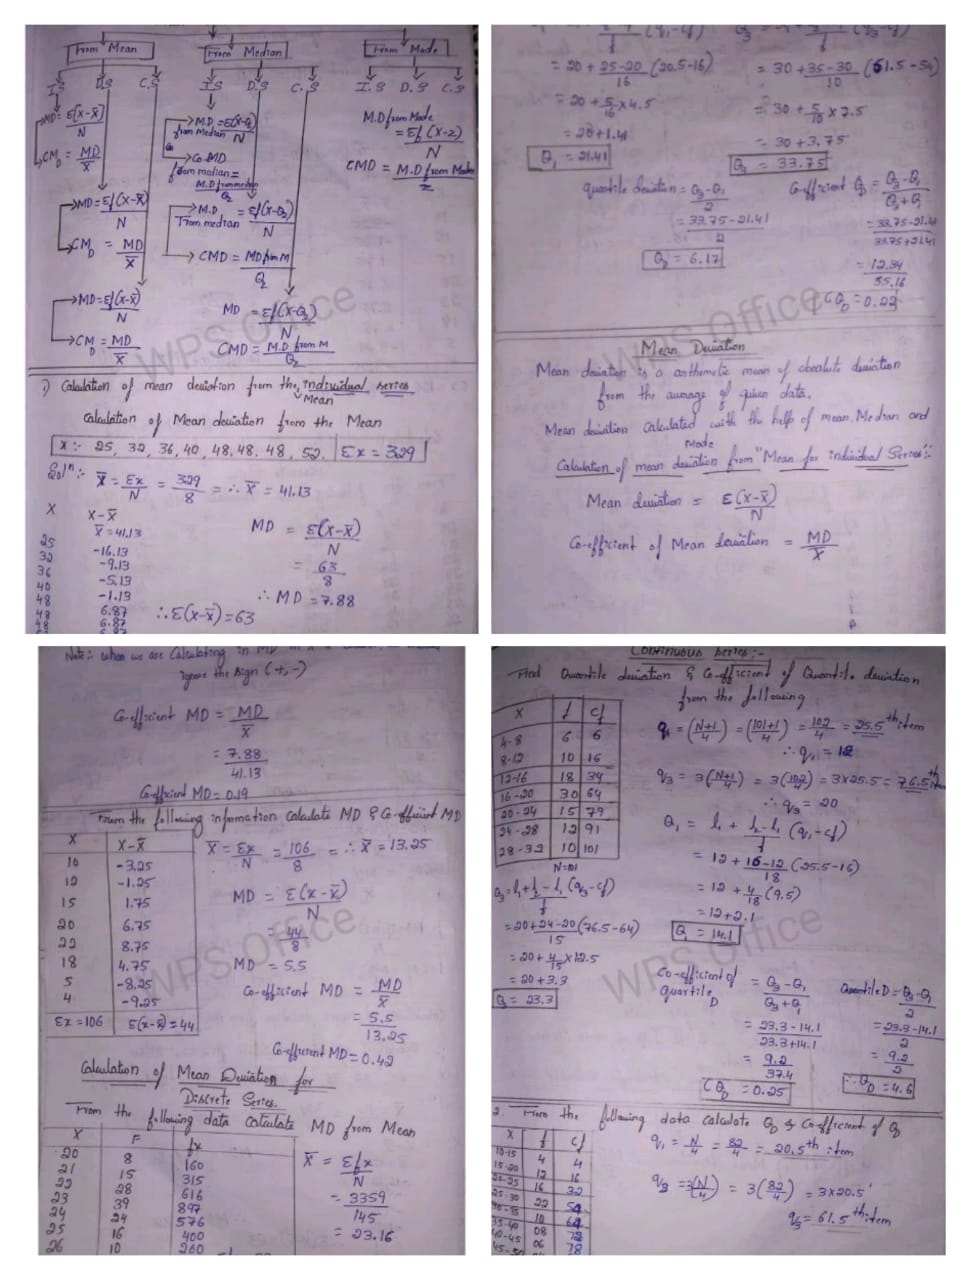 From Mean From Median From Mode
I.S D.S C.S I.S D.S C.S I.S D.S C.S
MD = Σ(X-X̄)/N
CMD = MD/X̄
MD = Σf(X-X̄)/N
CMD = MD/X̄
MD = Σf(X-X̄)/N
CMD = MD/X̄
M.D from Median = Σ(X-Q2)/N
Co. MD from median = M.D from median/Q2
M.D from median = Σf(X-Q2)/N
CMD = MD from M/Q2
MD = Σf(X-Q2)/N
CMD = M.D from M/Q2
M.D from Mode = Σf(X-Z)/N
CMD = M.D from Mode/Z
1) Calculation of mean deviation from the Mean, individual series
Calculation of Mean deviation from the Mean
X :- 25, 32, 36, 40, 48, 48, 48, 52. Σx = 329
Soln :- X̄ = Σx/N = 329/8 = ∴ X̄ = 41.13
X X-X̄
X̄ = 41.13
25 -16.13
32 -9.13
36 -5.13
40 -1.13
48 6.87
48 6.87
48 6.87
MD = Σ(X-X̄)/N
= 63/8
∴ MD = 7.88
∴ Σ(x-x̄) = 63
= 20 + 25-20/16 (20.5-16)
= 20 + 5/16 × 4.5
= 20 + 1.41
Q1 = 21.41
= 30 + 35-30/10 (61.5-54)
= 30 + 5/10 × 7.5
= 30 + 3.75
Q3 = 33.75
quartile deviation = Q3-Q1/2
= 33.75-21.41/2
QD = 6.17
Co-efficient QD = Q3-Q1/Q3+Q1
= 33.75-21.41/33.75+21.41
= 12.34/55.16
CQD = 0.22
Mean Deviation
Mean deviation is a arthemetic mean of absolute deviation
from the average of given data.
Mean deviation calculated with the help of mean, Median and
Mode
Calculation of mean deviation from "Mean for individual Series":-
Mean deviation = Σ(X-X̄)/N
Co-efficient of Mean deviation = MD/X̄
Note:- when we are Calculating
ignore the sign (+,-)
Co-efficient MD = MD/X̄
= 7.88/41.13
Co-efficient MD = 0.19
From the following information calculate MD & Co-efficient MD
X X-X̄
10 -3.25
12 -1.25
15 1.75
20 6.75
22 8.75
18 4.75
5 -8.25
4 -9.25
Σx = 106 Σ(x-x̄) = 44
X̄ = Σx/N = 106/8 = ∴ X̄ = 13.25
MD = Σ(x-x̄)/N
= 44/8
MD = 5.5
Co-efficient MD = MD/X̄
= 5.5/13.25
Co-efficient MD = 0.42
Calculation of Mean Deviation for
Discrete Series.
From the following data calculate MD from Mean
X F fx
20 8 160
21 15 315
22 28 616
23 39 897
24 24 576
25 16 400
26 10 260
X̄ = Σfx/N
= 3359/145
= 23.16
Continuous series:-
Find Quartile deviation & Co-efficient of Quartile deviation
from the following
X f Cf
4-8 6 6
8-12 10 16
12-16 18 34
16-20 30 64
20-24 15 79
24-28 12 91
28-32 10 101
N=101
q1 = (N+1/4) = (101+1/4) = 102/4 = 25.5th item
∴ q1 = 12
q3 = 3(N+1/4) = 3(102/4) = 3×25.5 = 76.5th item
∴ q3 = 20
Q1 = l1 + l2-l1/f (q1-cf)
= 12 + 16-12/18 (25.5-16)
= 12 + 4/18 (9.5)
= 12 + 2.1
Q1 = 14.1
Q3 = l1 + l2-l1/f (q3-cf)
= 20 + 24-20/15 (76.5-64)
= 20 + 4/15 × 12.5
= 20 + 3.3
Q3 = 23.3
Co-efficient of quartile D = Q3-Q1/Q3+Q1
= 23.3-14.1/23.3+14.1
= 9.2/37.4
CQD = 0.25
Quartile D = Q3-Q1/2
= 23.3-14.1/2
= 9.2/2
∴ QD = 4.6
2. From the following data calculate QD & Co-efficient of QD
X f Cf
10-15 4 4
15-20 12 16
20-25 16 32
25-30 22 54
30-35 10 64
35-40 08 72
40-45 06 78
q1 = N/4 = 82/4 = 20.5th item
q3 = 3(N/4) = 3(82/4) = 3×20.5
q3 = 61.5th item
WPS Office
WPS Office
WPS Office
WPS Office